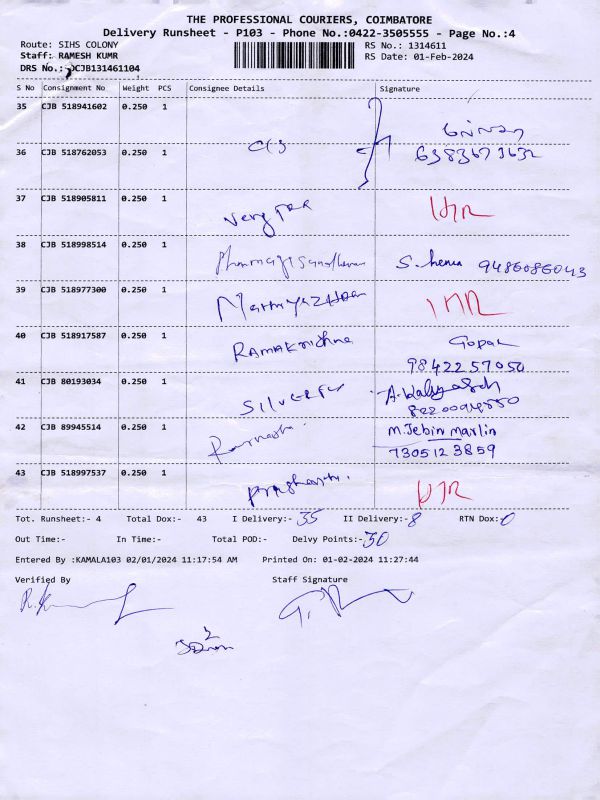 THE PROFESSIONAL COURIERS, COIMBATORE
Delivery Runsheet - P103 - Phone No.:0422-3505555 - Page No.:4
Route: SIHS COLONY
RS No.: 1314611
Staff: RAMESH KUMR
RS Date: 01-Feb-2024
DRS No.: CJB131461104
S No Consignment No Weight PCS Consignee Details Signature
35 CJB 518941602 0.250 1
36 CJB 518762053 0.250 1
37 CJB 518905811 0.250 1
38 CJB 518998514 0.250 1 S. hema 9486086043
39 CJB 518977300 0.250 1
40 CJB 518917587 0.250 1 RAMAKrichna Gopal
9842257050
41 CJB 80193034 0.250 1
42 CJB 89945514 0.250 1 M. Jebin Marlin
7305123859
43 CJB 518997537 0.250 1
Tot. Runsheet:- 4 Total Dox:- 43 I Delivery:- 35 II Delivery:- 8 RTN Dox:- 0
Out Time:- In Time:- Total POD:- Delvy Points:- 30
Entered By :KAMALA103 02/01/2024 11:17:54 AM Printed On: 01-02-2024 11:27:44
Verified By Staff Signature